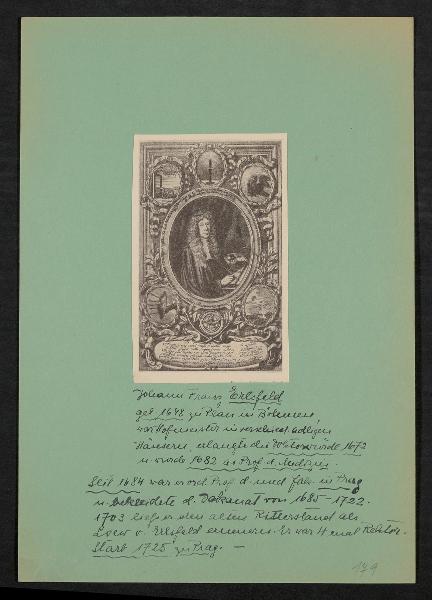 Johann Franz Erlsfeld
geb 1648 zu Plan in Böhmen,
war Hofmeister in verschied. adligen
Häusern, erlangte die Doktorwürde 1672
u. wurde 1682 Prof. d. Medizin.
Seit 1684 war er ord Prof d. und in Prag
u. bekleidete d. Dekanat von 1685-1722.
1703 ließ er den alten Ritterstand als
Loew v. Erlsfeld erneuern. Er war 4 mal Rektor.
Starb 1725 zu Prag. —
149